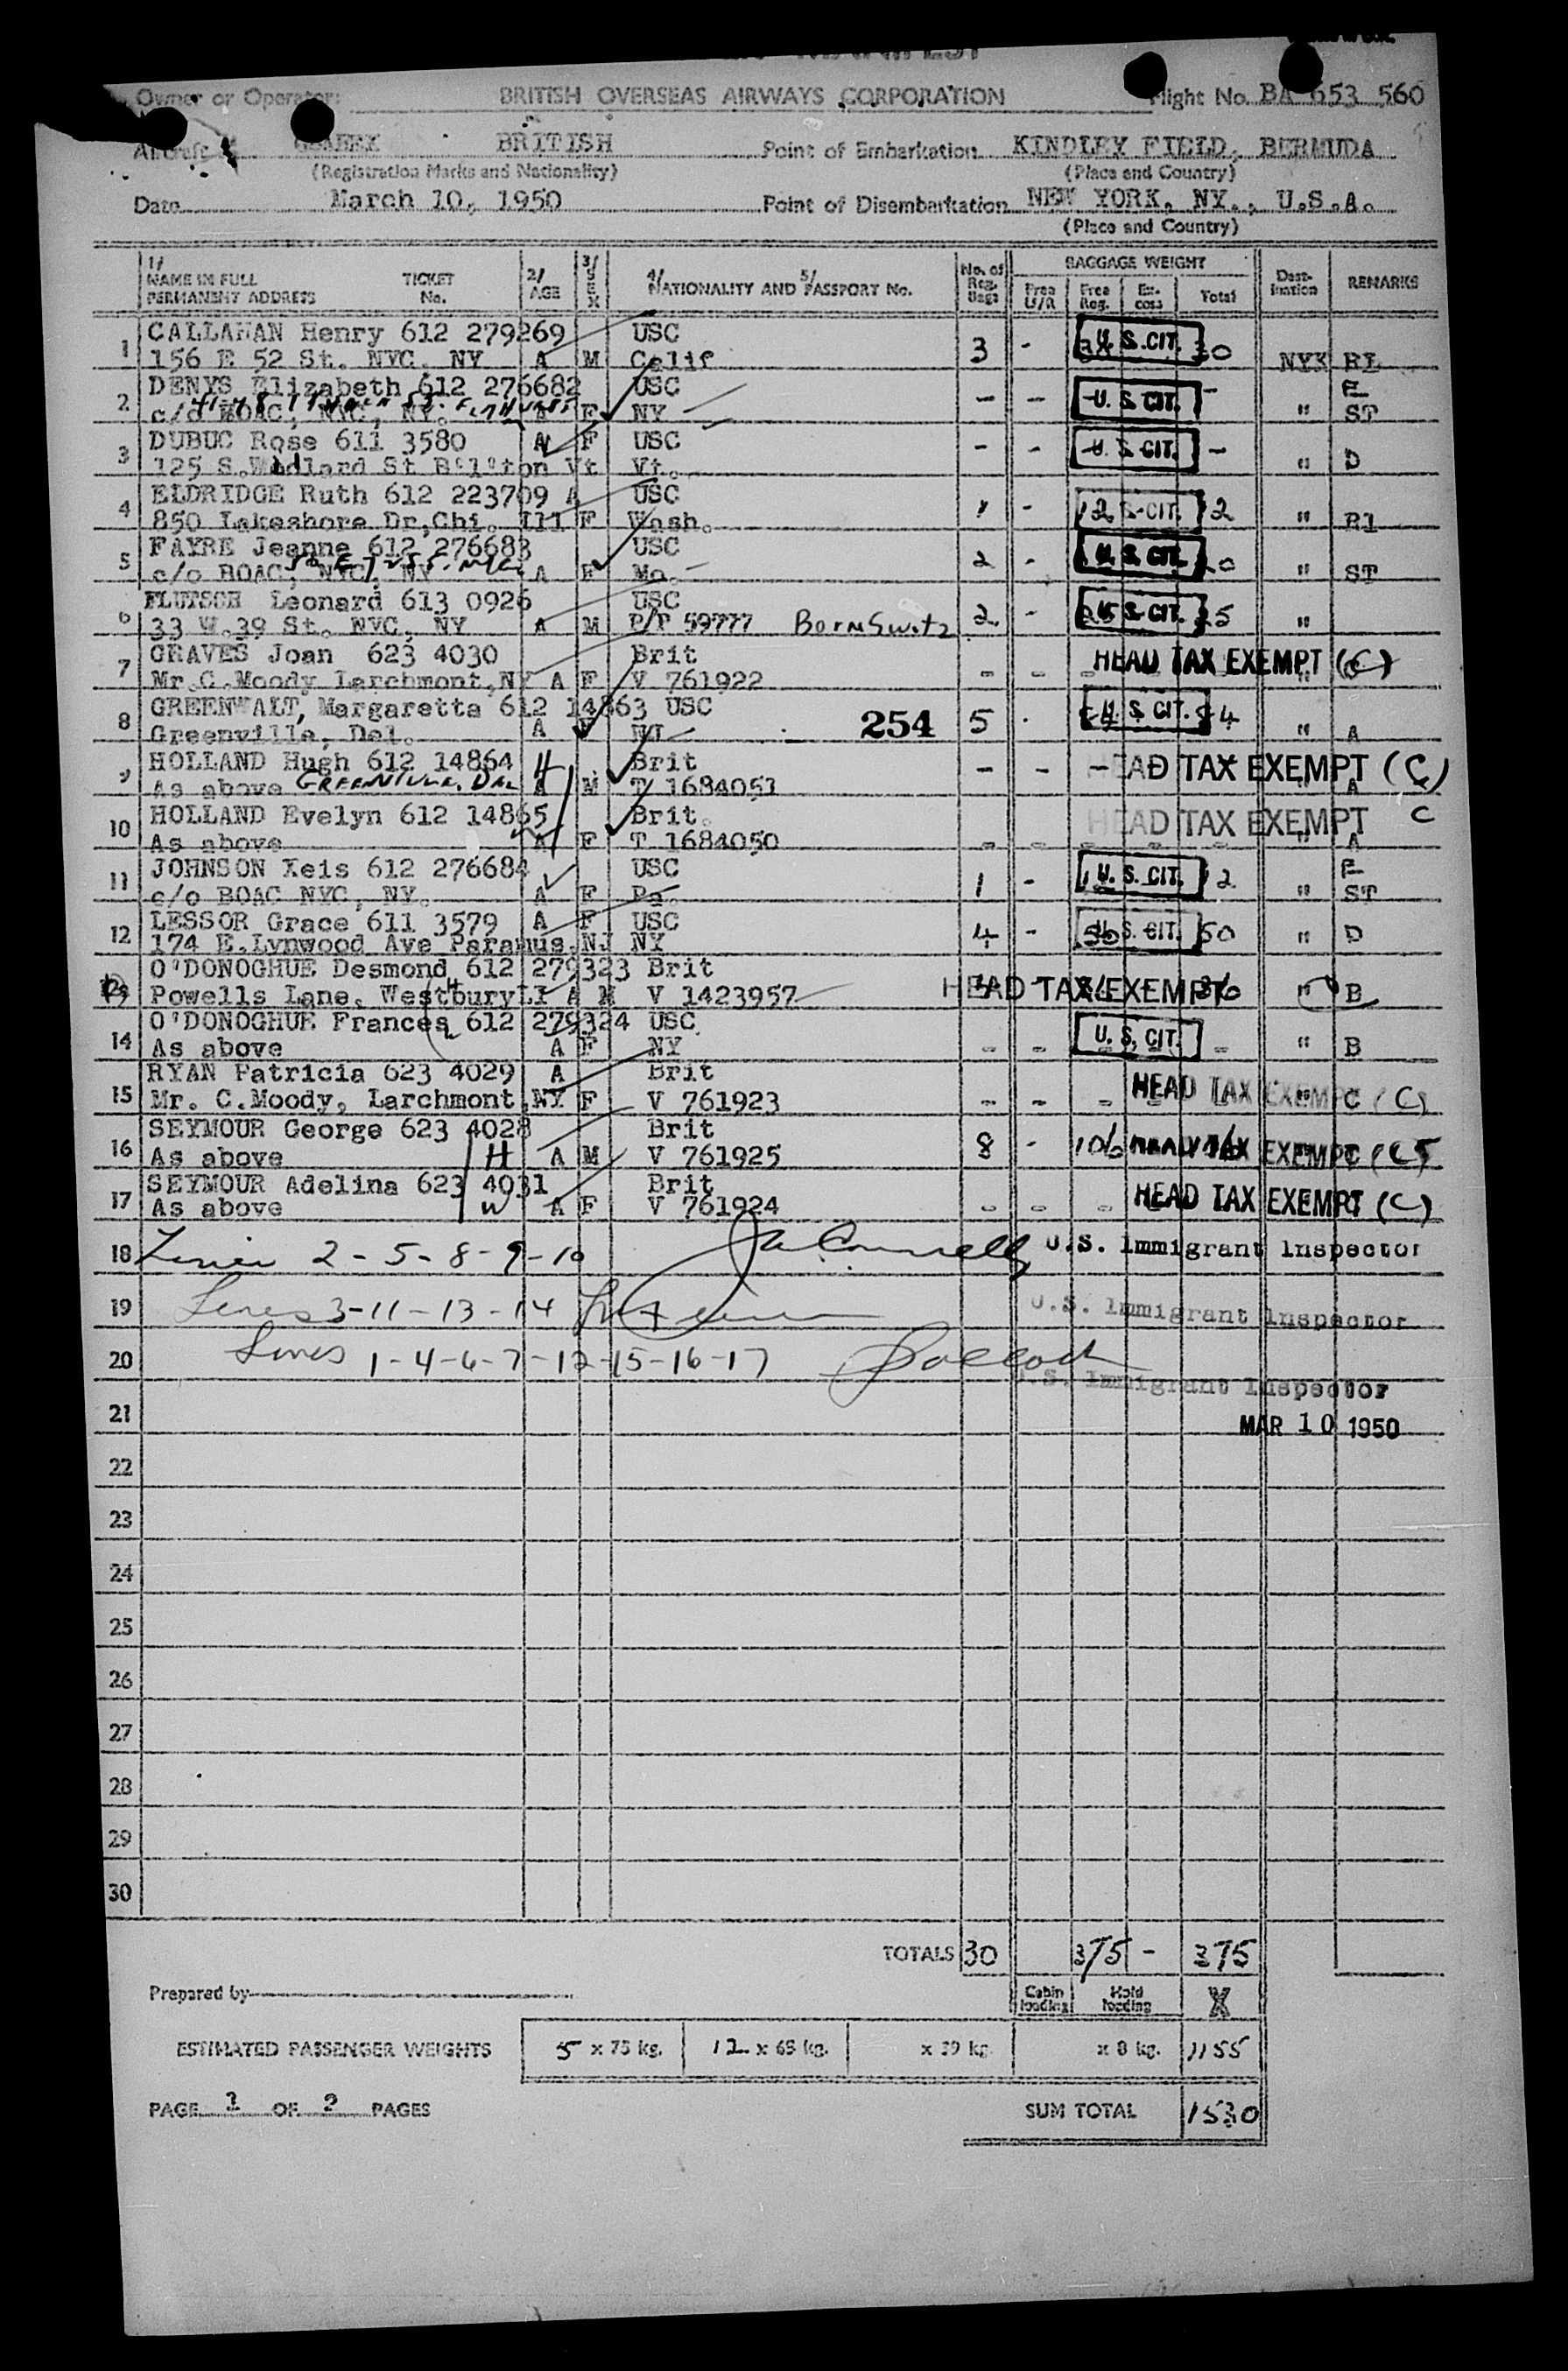 Owner or Operator: BRITISH OVERSEAS AIRWAYS CORPORATION Flight No. BA 653 560
Aircraft BRITISH Point of Embarkation KINDLEY FIELD, BERMUDA
(Registration Marks and Nationality) (Place and Country)
Date March 10, 1950 Point of Disembarkation NEW YORK, NY., U.S.A.
(Place and Country)
1/ NAME IN FULL PERMANENT ADDRESS TICKET No. 2/ AGE 3/ SEX 4/ NATIONALITY AND 5/ PASSPORT No. No. of Reg. Bags BAGGAGE WEIGHT Free U/R Free Reg. Ex- cess Total Dest- ination REMARKS
1 CALLAHAN Henry 612 279269 USC
156 E 52 St. NYC, NY A M Calif 3 - U.S. CIT. 30 NYK BL
2 DENYS Elizabeth 612 276682 USC E
c/o BOAC, NYC, NY. A F NY - - U.S. CIT. - " ST
3 DUBUC Rose 611 3580 A F USC
125 S. Willard St B'l'ton Vt Vt. - - U.S. CIT. - " D
4 ELDRIDGE Ruth 612 223709 A USC
850 Lakeshore Dr,Chi. Ill F Wash. 1 - 12 U.S. CIT. 12 " Bl
5 FAYRE Jeanne 612 276683 USC
c/o BOAC, NYC, NY A F Mo. 2 - U.S. CIT. 20 " ST
6 FLUTSCH Leonard 613 0926 USC
33 W.39 St. NYC, NY A M P/P 59777 Born Switz 2 - 25 U.S. CIT. 25 "
7 GRAVES Joan 623 4030 Brit
Mr.C.Moody Larchmont,NY A F V 761922 - - HEAD TAX EXEMPT (C)
8 GREENWALT, Margaretta 612 14863 USC
Greenville, Del. A F NJ 254 5 - U.S. CIT. 54 " A
9 HOLLAND Hugh 612 14864 H Brit
As above GREENVILLE. DEL A M T 1684051 - - - HEAD TAX EXEMPT (C) " A
10 HOLLAND Evelyn 612 14865 Brit.
As above A F T 1684050 - - - HEAD TAX EXEMPT C " A
11 JOHNSON Xeis 612 276684 USC E
c/o BOAC NYC, NY. A F Pa. 1 - 12 U.S. CIT. 12 " ST
12 LESSOR Grace 611 3579 A F USC
174 E.Lynwood Ave Paramus.NJ NY 4 - 50 U.S. CIT. 50 " D
13 O'DONOGHUE Desmond 612 279323 Brit
Powells Lane, Westbury LI A M V 1423957 HEAD TAX EXEMPT 36 " B
14 O'DONOGHUE Frances 612 279324 USC
As above A F NY - - U.S. CIT. - " B
15 RYAN Patricia 623 4029 A Brit
Mr. C.Moody, Larchmont,NY F V 761923 - - - HEAD TAX EXEMPT (C) " C
16 SEYMOUR George 623 4028 Brit
As above H A M V 761925 8 - 106 HEAD TAX EXEMPT (C) " C
17 SEYMOUR Adelina 623 4031 Brit
As above W A F V 761924 - - - HEAD TAX EXEMPT (C)
18 Lines 2-5-8-9-10 U.S. Immigrant Inspector
19 Lines 3-11-13-14 U.S. Immigrant Inspector
20 Lines 1-4-6-7-12-15-16-17
U.S. Immigrant Inspector
21 MAR 10 1950
22
23
24
25
26
27
28
29
30
TOTALS 30 375 - 375
Prepared by Cabin loading Hold loading X
ESTIMATED PASSENGER WEIGHTS 5 x 75 kg. 12 x 65 kg. x 39 kg. x 8 kg. 1155
PAGE 1 OF 2 PAGES SUM TOTAL 1530